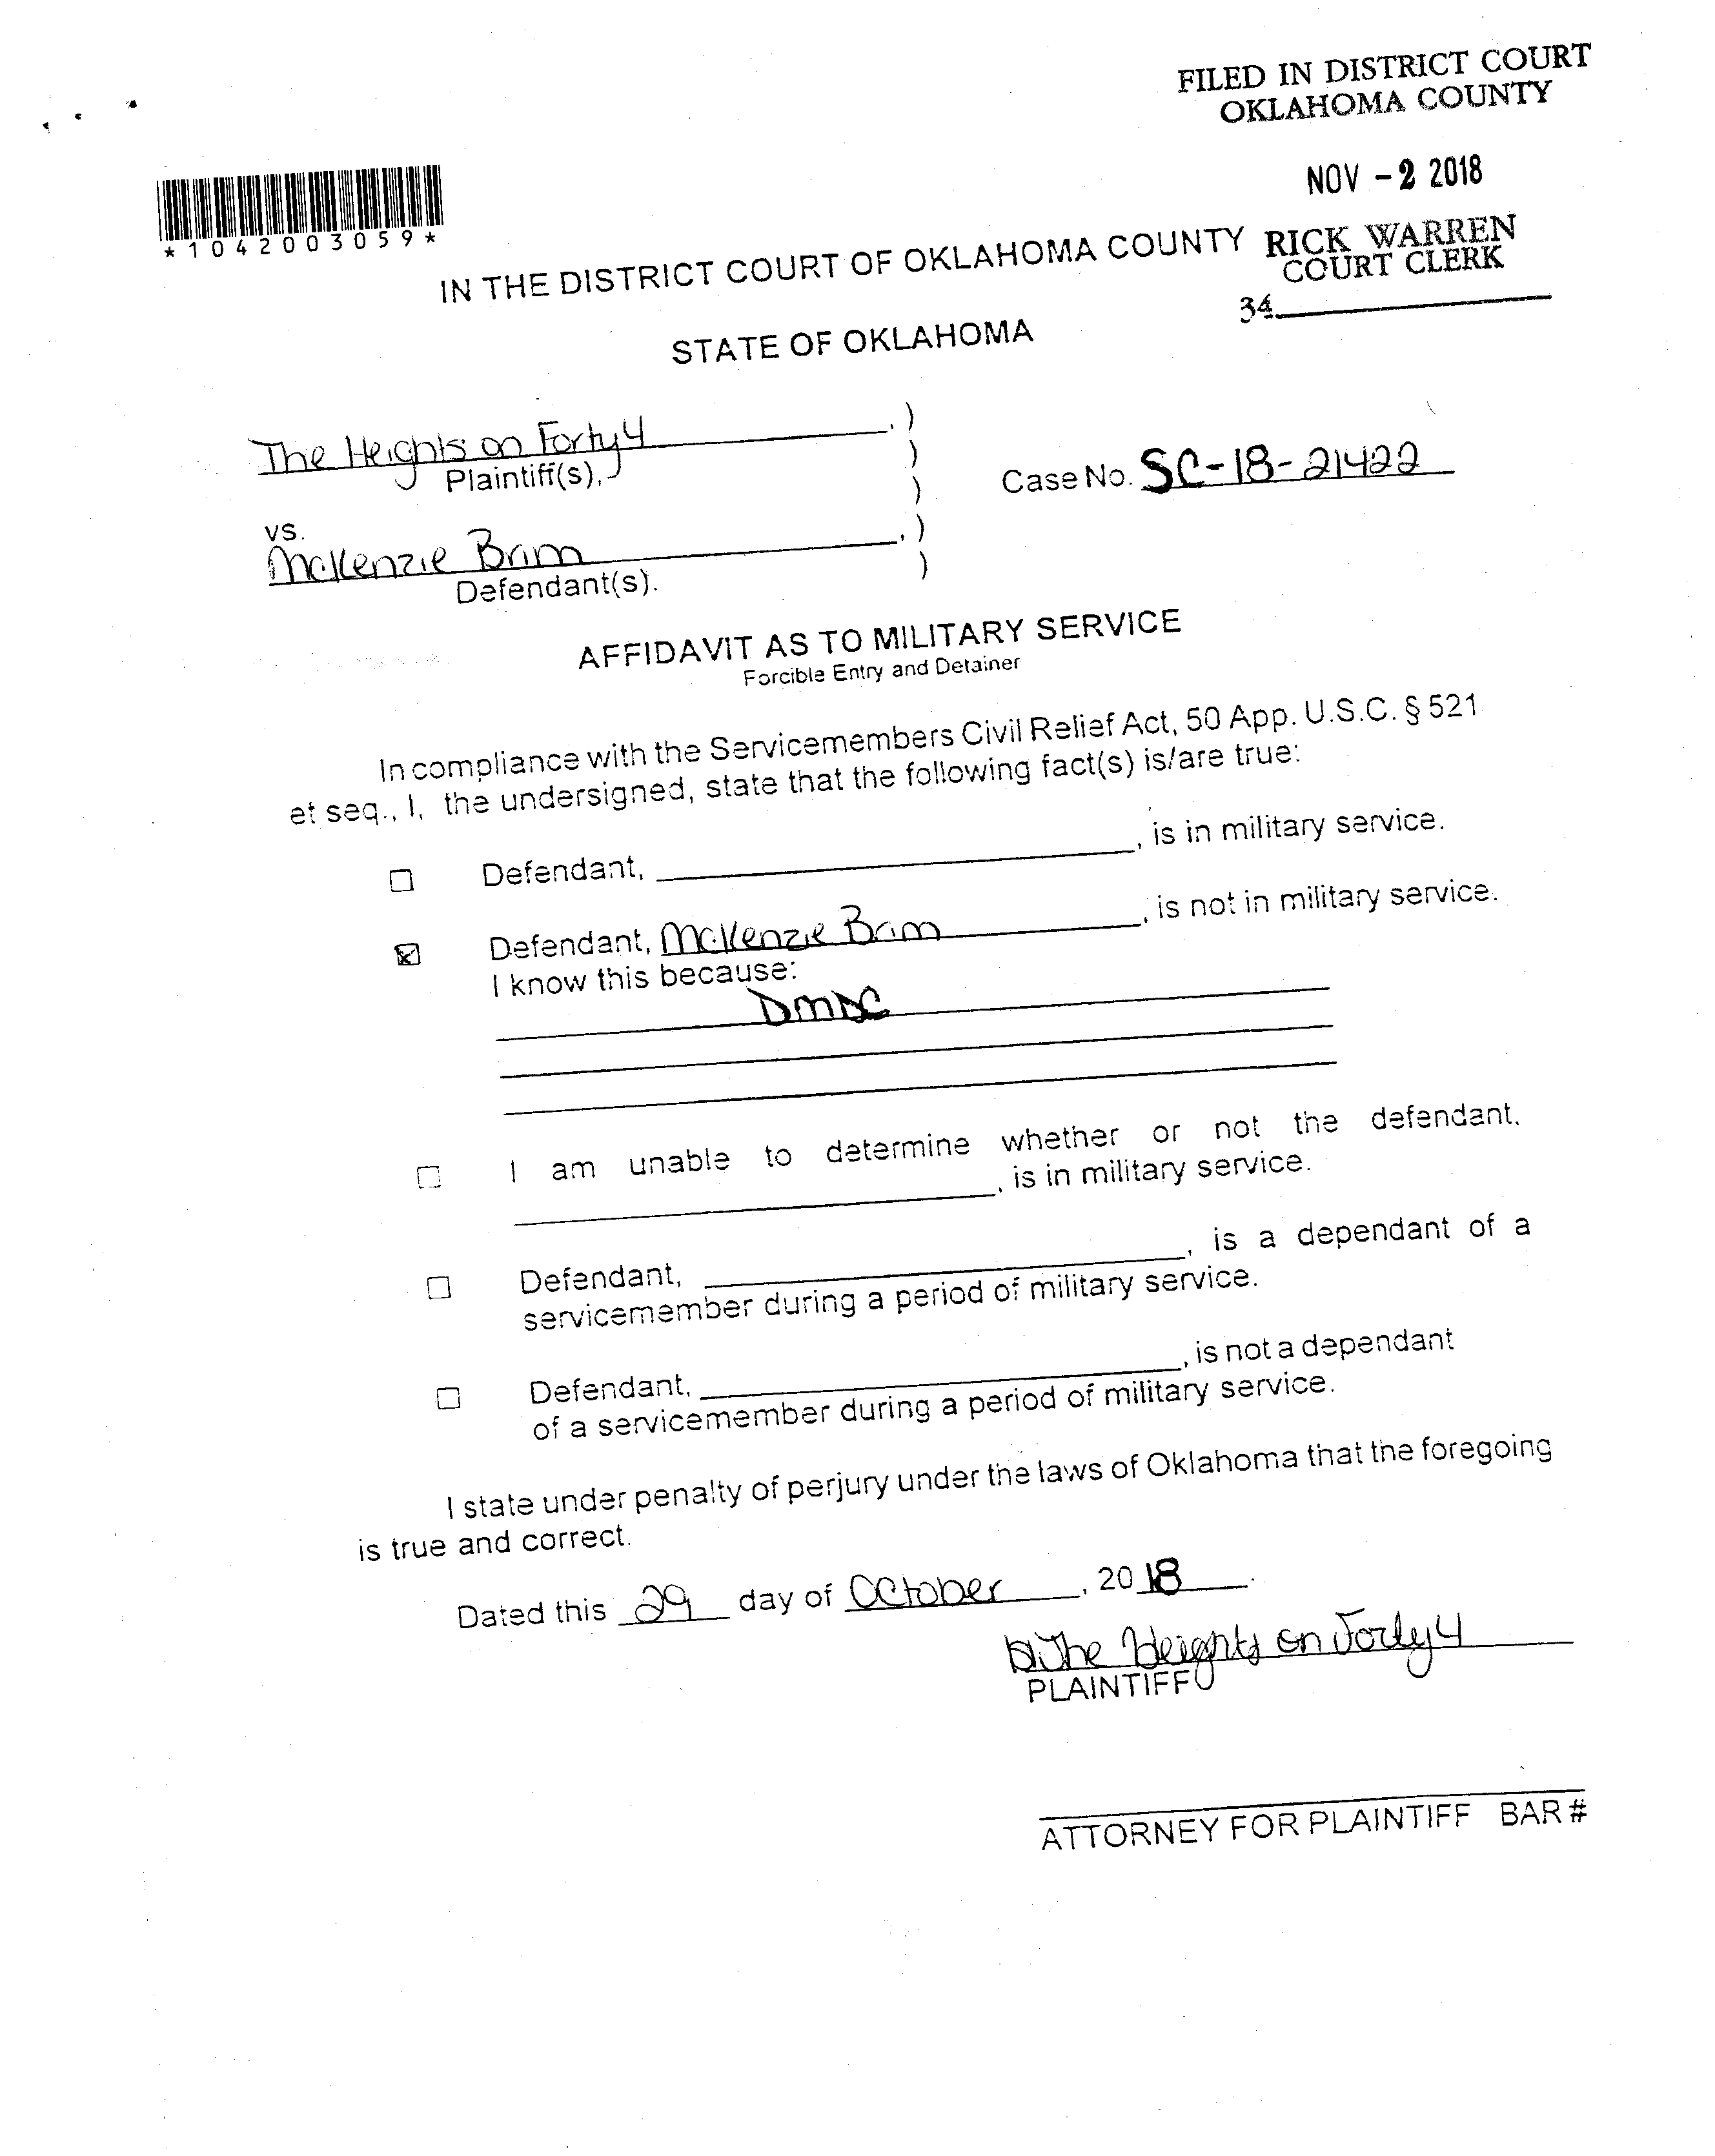 FILED IN DISTRICT COURT
OKLAHOMA COUNTY
NOV - 2 2018
RICK WARREN
COURT CLERK
34
*1042003059*
IN THE DISTRICT COURT OF OKLAHOMA COUNTY
STATE OF OKLAHOMA
The Heights on Forty4, )
Plaintiff(s), )
)
Case No. SC-18-21422
vs.
McKenzie Brim, )
Defendant(s). )
AFFIDAVIT AS TO MILITARY SERVICE
Forcible Entry and Detainer
In compliance with the Servicemembers Civil Relief Act, 50 App. U.S.C. § 521
et seq., I, the undersigned, state that the following fact(s) is/are true:
☐ Defendant, , is in military service.
☒ Defendant, McKenzie Brim, is not in military service.
I know this because:
DMDC
☐ I am unable to determine whether or not the defendant,
, is in military service.
☐ Defendant, , is a dependant of a
servicemember during a period of military service.
☐ Defendant, , is not a dependant
of a servicemember during a period of military service.
I state under penalty of perjury under the laws of Oklahoma that the foregoing
is true and correct.
Dated this 29 day of October, 2018.
The Heights on Forty4
PLAINTIFF
ATTORNEY FOR PLAINTIFF BAR #